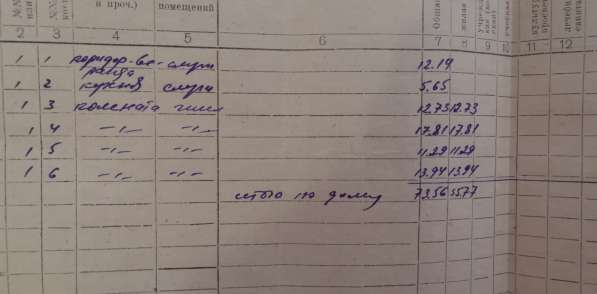 и проч.)
помещений
Общая
жилая
2 3 4 5 6 7 8 9 11 12
1 1 коридор-ве- служ 12.14
ранда
1 2 кухня служ 5.65
1 3 комната жил 12.73 12.73
1 4 -"- -"- 17.81 17.81
1 5 -"- -"- 11.29 11.29
1 6 -"- -"- 13.94 13.94
итого по дому 73.56 55.77